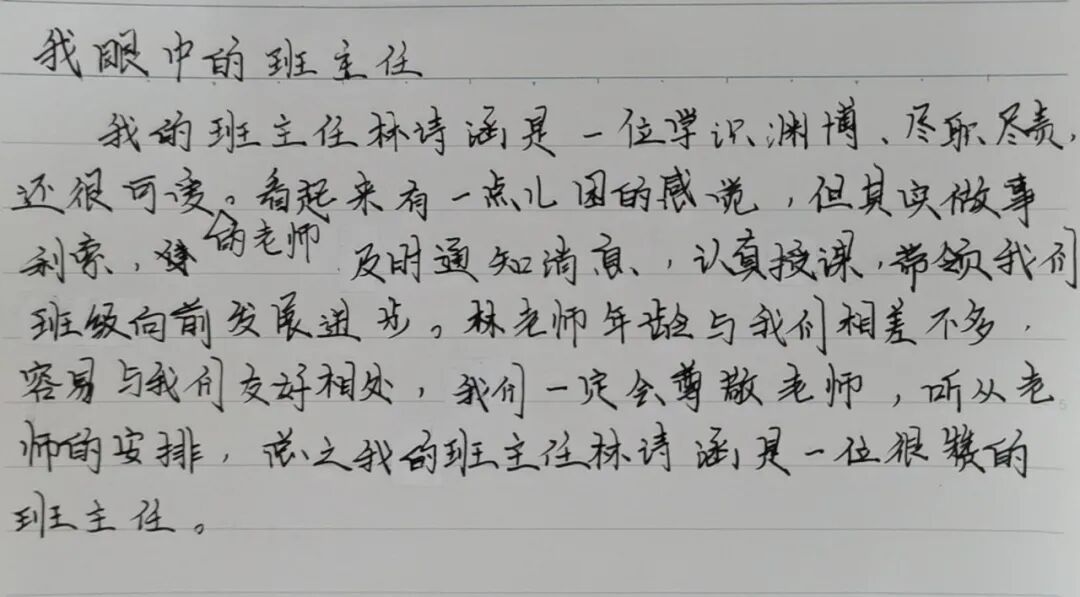 我眼中的班主任
我的班主任林诗涵是一位学识渊博、尽职尽责,
还很可爱。看起来有一点儿困的感觉,但其实做事
的老师
利索,及时通知消息,认真授课,带领我们
班级向前发展进步。林老师年龄与我们相差不多,
容易与我们友好相处,我们一定会尊敬老师,听从老
师的安排,总之我的班主任林诗涵是一位很赞的
班主任。